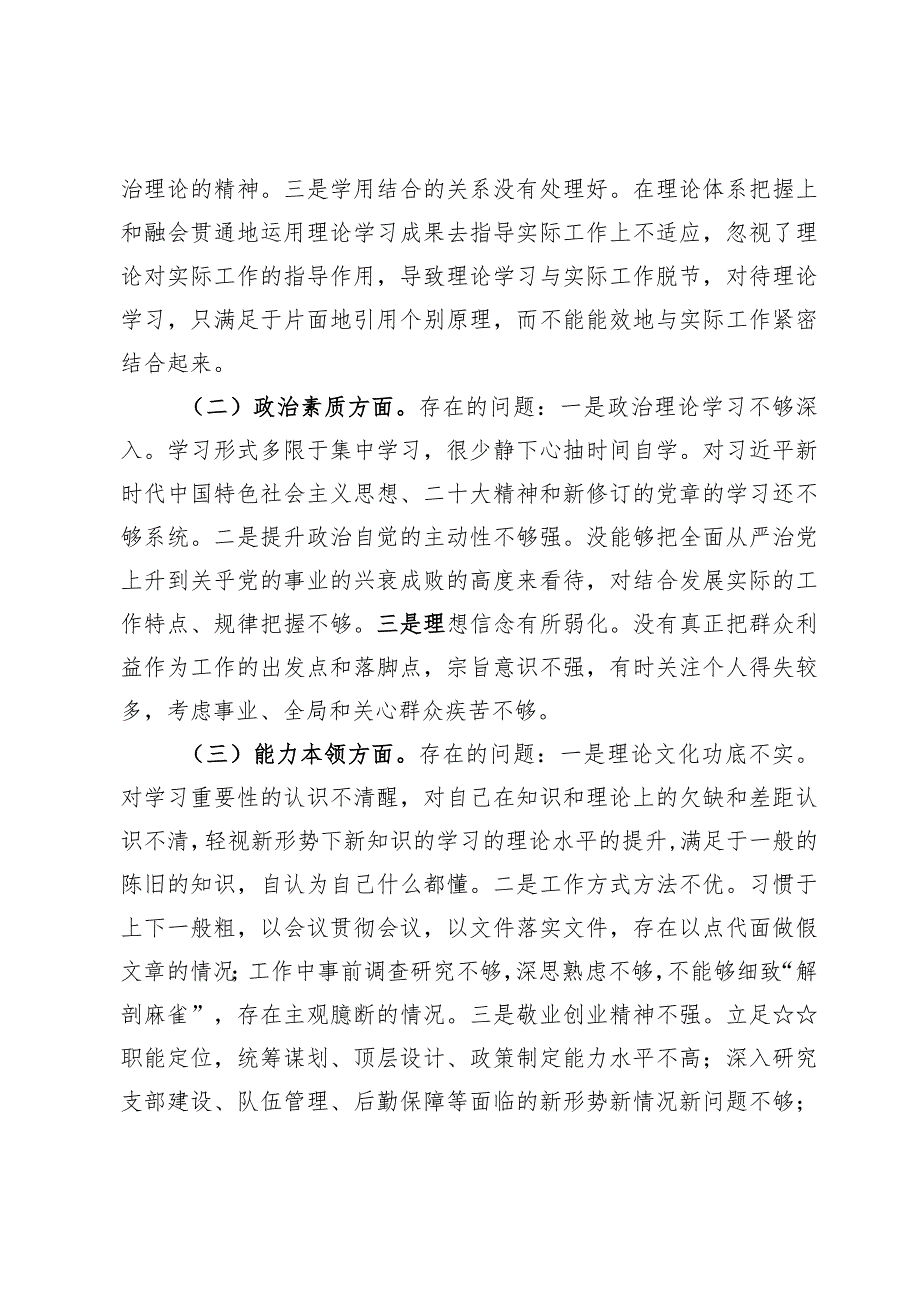 治理论的精神。三是学用结合的关系没有处理好。在理论体系把握上
和融会贯通地运用理论学习成果去指导实际工作上不适应，忽视了理
论对实际工作的指导作用，导致理论学习与实际工作脱节，对待理论
学习，只满足于片面地引用个别原理，而不能能效地与实际工作紧密
结合起来。
（二）政治素质方面。存在的问题：一是政治理论学习不够深
入。学习形式多限于集中学习，很少静下心抽时间自学。对习近平新
时代中国特色社会主义思想、二十大精神和新修订的党章的学习还不
够系统。二是提升政治自觉的主动性不够强。没能够把全面从严治党
上升到关乎党的事业的兴衰成败的高度来看待，对结合发展实际的工
作特点、规律把握不够。三是理想信念有所弱化。没有真正把群众利
益作为工作的出发点和落脚点，宗旨意识不强，有时关注个人得失较
多，考虑事业、全局和关心群众疾苦不够。
（三）能力本领方面。存在的问题：一是理论文化功底不实。
对学习重要性的认识不清醒，对自己在知识和理论上的欠缺和差距认
识不清,轻视新形势下新知识的学习的理论水平的提升,满足于一般的
陈旧的知识，自认为自己什么都懂。二是工作方式方法不优。习惯于
上下一般粗，以会议贯彻会议，以文件落实文件，存在以点代面做假
文章的情况;工作中事前调查研究不够,深思熟虑不够,不能够细致“解
剖麻雀”，存在主观臆断的情况。三是敬业创业精神不强。立足☆☆
职能定位，统筹谋划、顶层设计、政策制定能力水平不高；深入研究
支部建设、队伍管理、后勤保障等面临的新形势新情况新问题不够；